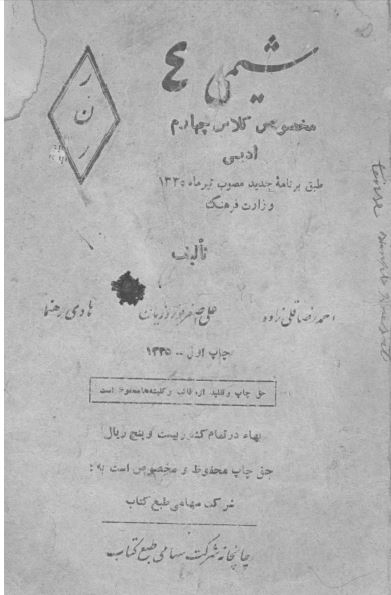 شیمی ٤
ر
ن
ر
مخصوص کلاس چهارم
ادبی
طبق برنامهٔ جدید مصوب تیرماه ۱۳۳۵
وزارت فرهنگ
تألیف
احمد رضا قلی زاده علی اصغر نوروزیان هادی رهنما
چاپ اول -- ۱۳۳۵
حق چاپ و تقلید از قالب و کلیشه‌ها محفوظ است
بهاء در تمام کشور بیست و پنج ریال
حق چاپ محفوظ و مخصوص است به :
شرکت سهامی طبع کتاب
چاپخانه شرکت سهامی طبع کتاب
tense